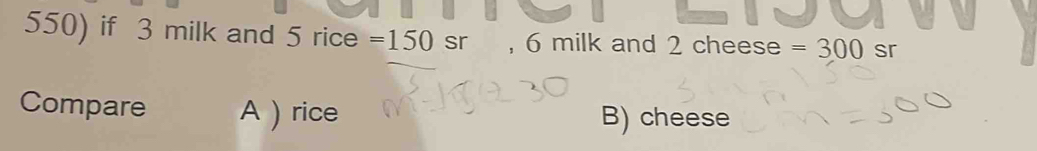 550) if 3 milk and 5 rice =150 sr , 6 milk and 2 cheese = 300 sr
Compare A ) rice B) cheese